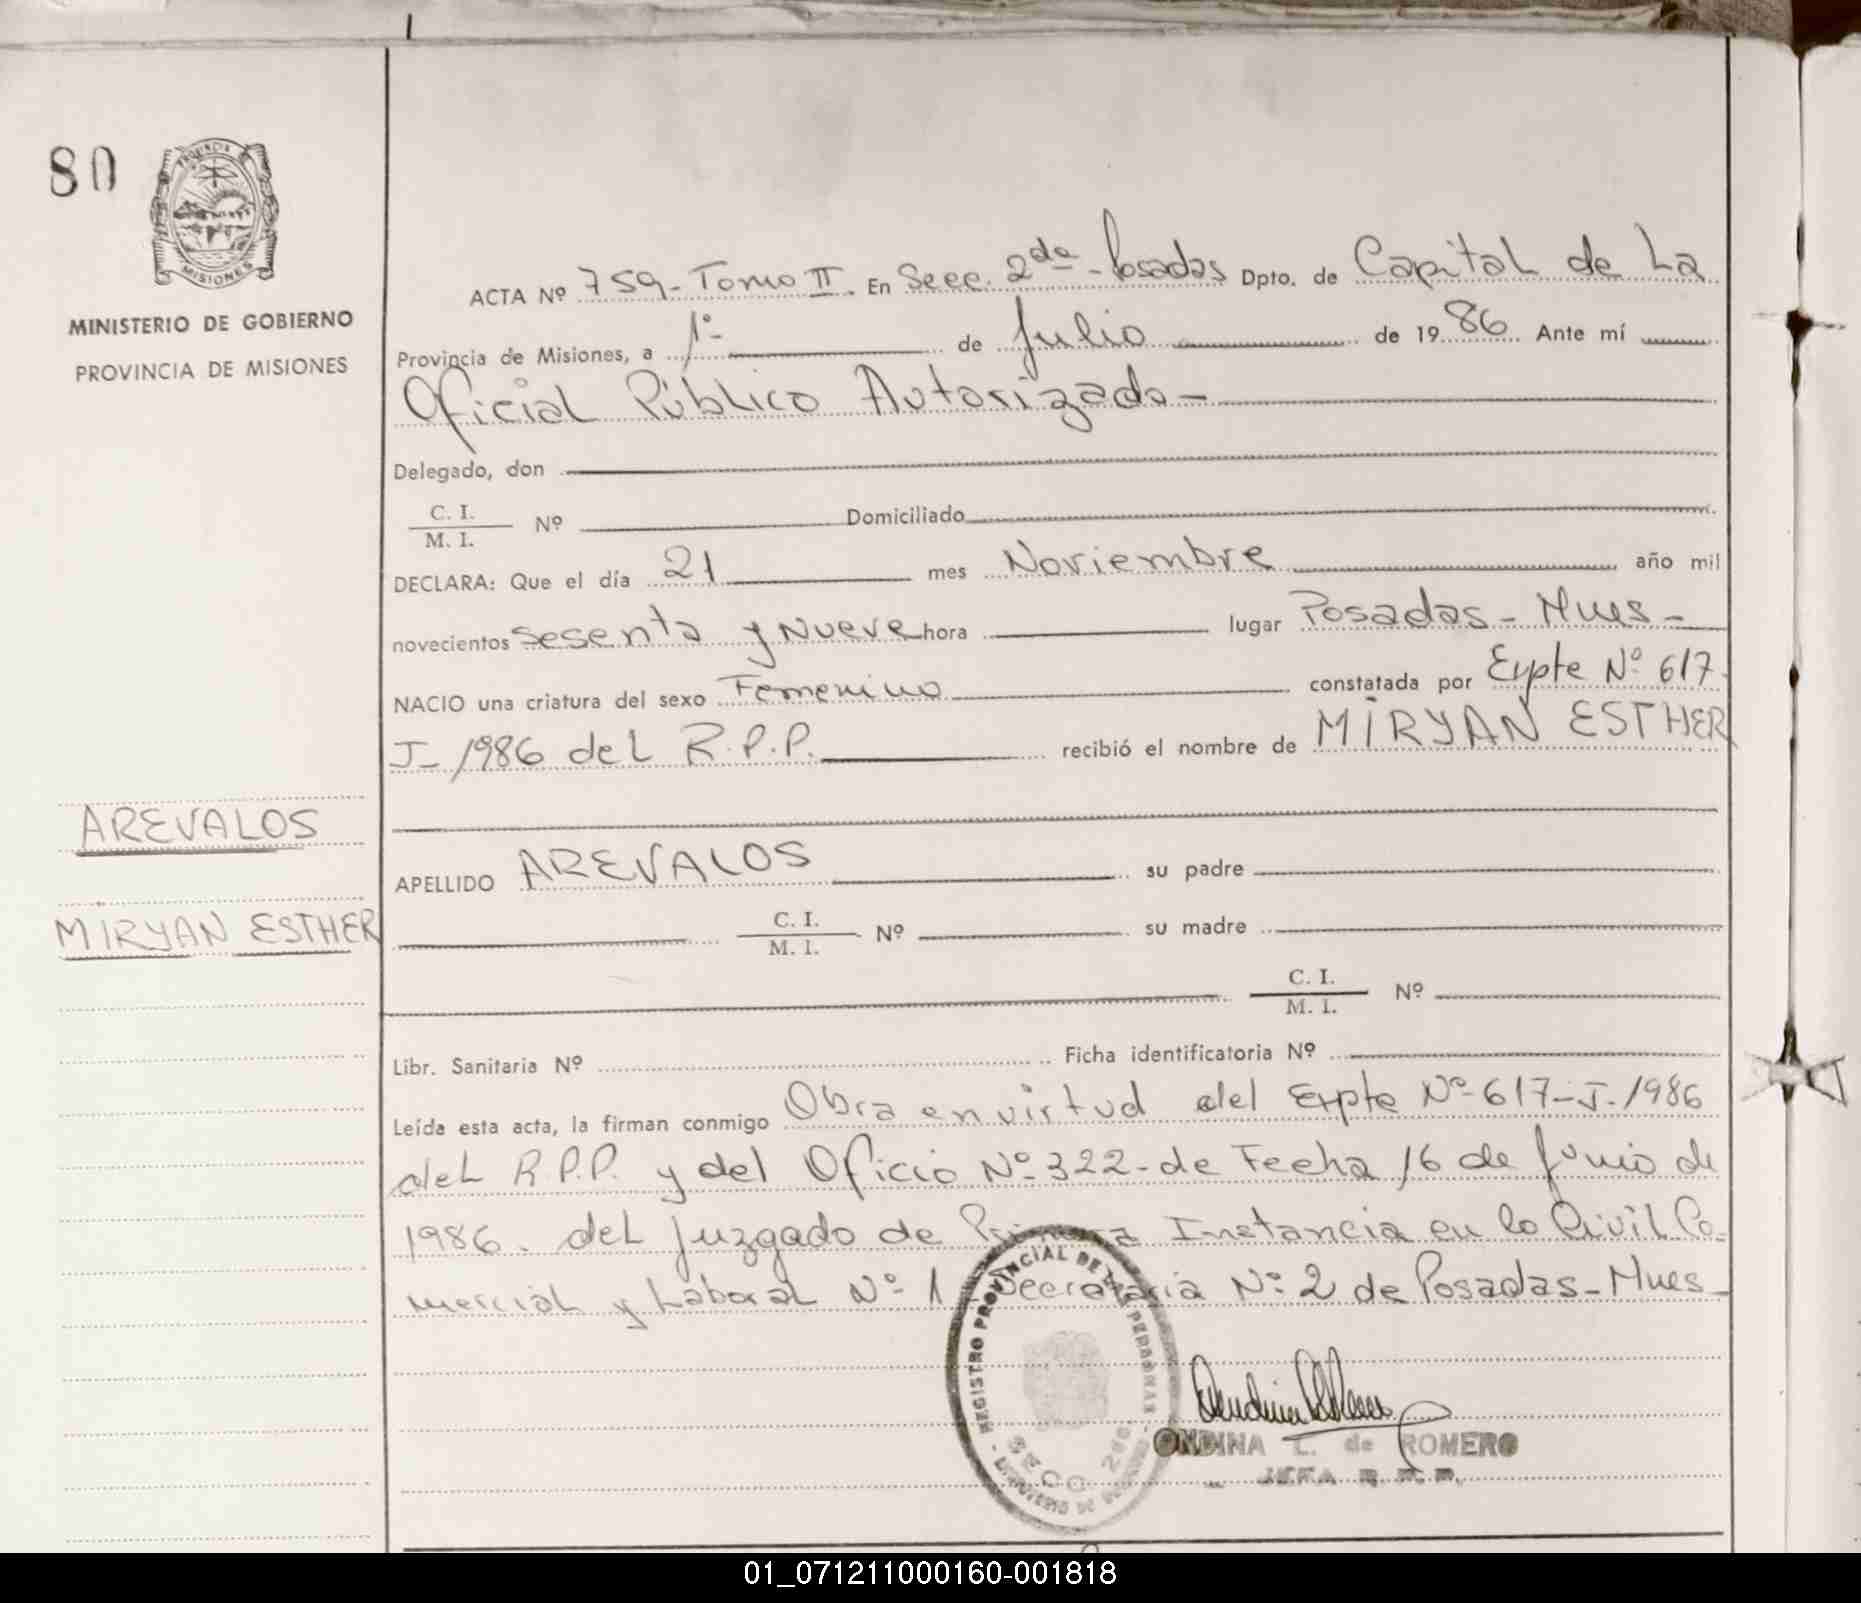 80
PROVINCIA
MISIONES
MINISTERIO DE GOBIERNO
PROVINCIA DE MISIONES
ACTA Nº 759 - Tomo II. En Secc. 2da - Posadas Dpto. de Capital de La
Provincia de Misiones, a 1º de Julio de 1986 Ante mí
Oficial Público Autorizado -
Delegado, don
C. I.
M. I. Nº Domiciliado
DECLARA: Que el día 21 mes Noviembre año mil
novecientos sesenta y Nueve hora lugar Posadas - Mnes -
NACIO una criatura del sexo Femenino constatada por Expte Nº 617-
J- 1986 del R.P.P. recibió el nombre de MIRYAN ESTHER
AREVALOS
APELLIDO AREVALOS su padre
MIRYAN ESTHER
C. I.
M. I. Nº su madre
C. I.
M. I. Nº
Libr. Sanitaria Nº Ficha identificatoria Nº
Leída esta acta, la firman conmigo Obra en virtud del Expte Nº 617-J-1986
del R.P.P. y del Oficio Nº 322 - de Fecha 16 de Junio de
1986. del Juzgado de Primera Instancia en lo Civil Co-
mercial y Laboral Nº 1 - Secretaria Nº 2 de Posadas - Mnes -
REGISTRO PROVINCIAL DE LAS PERSONAS
SECC. 2da.
ONDINA L. de ROMERO
JEFA R.P.P.
01_071211000160-001818